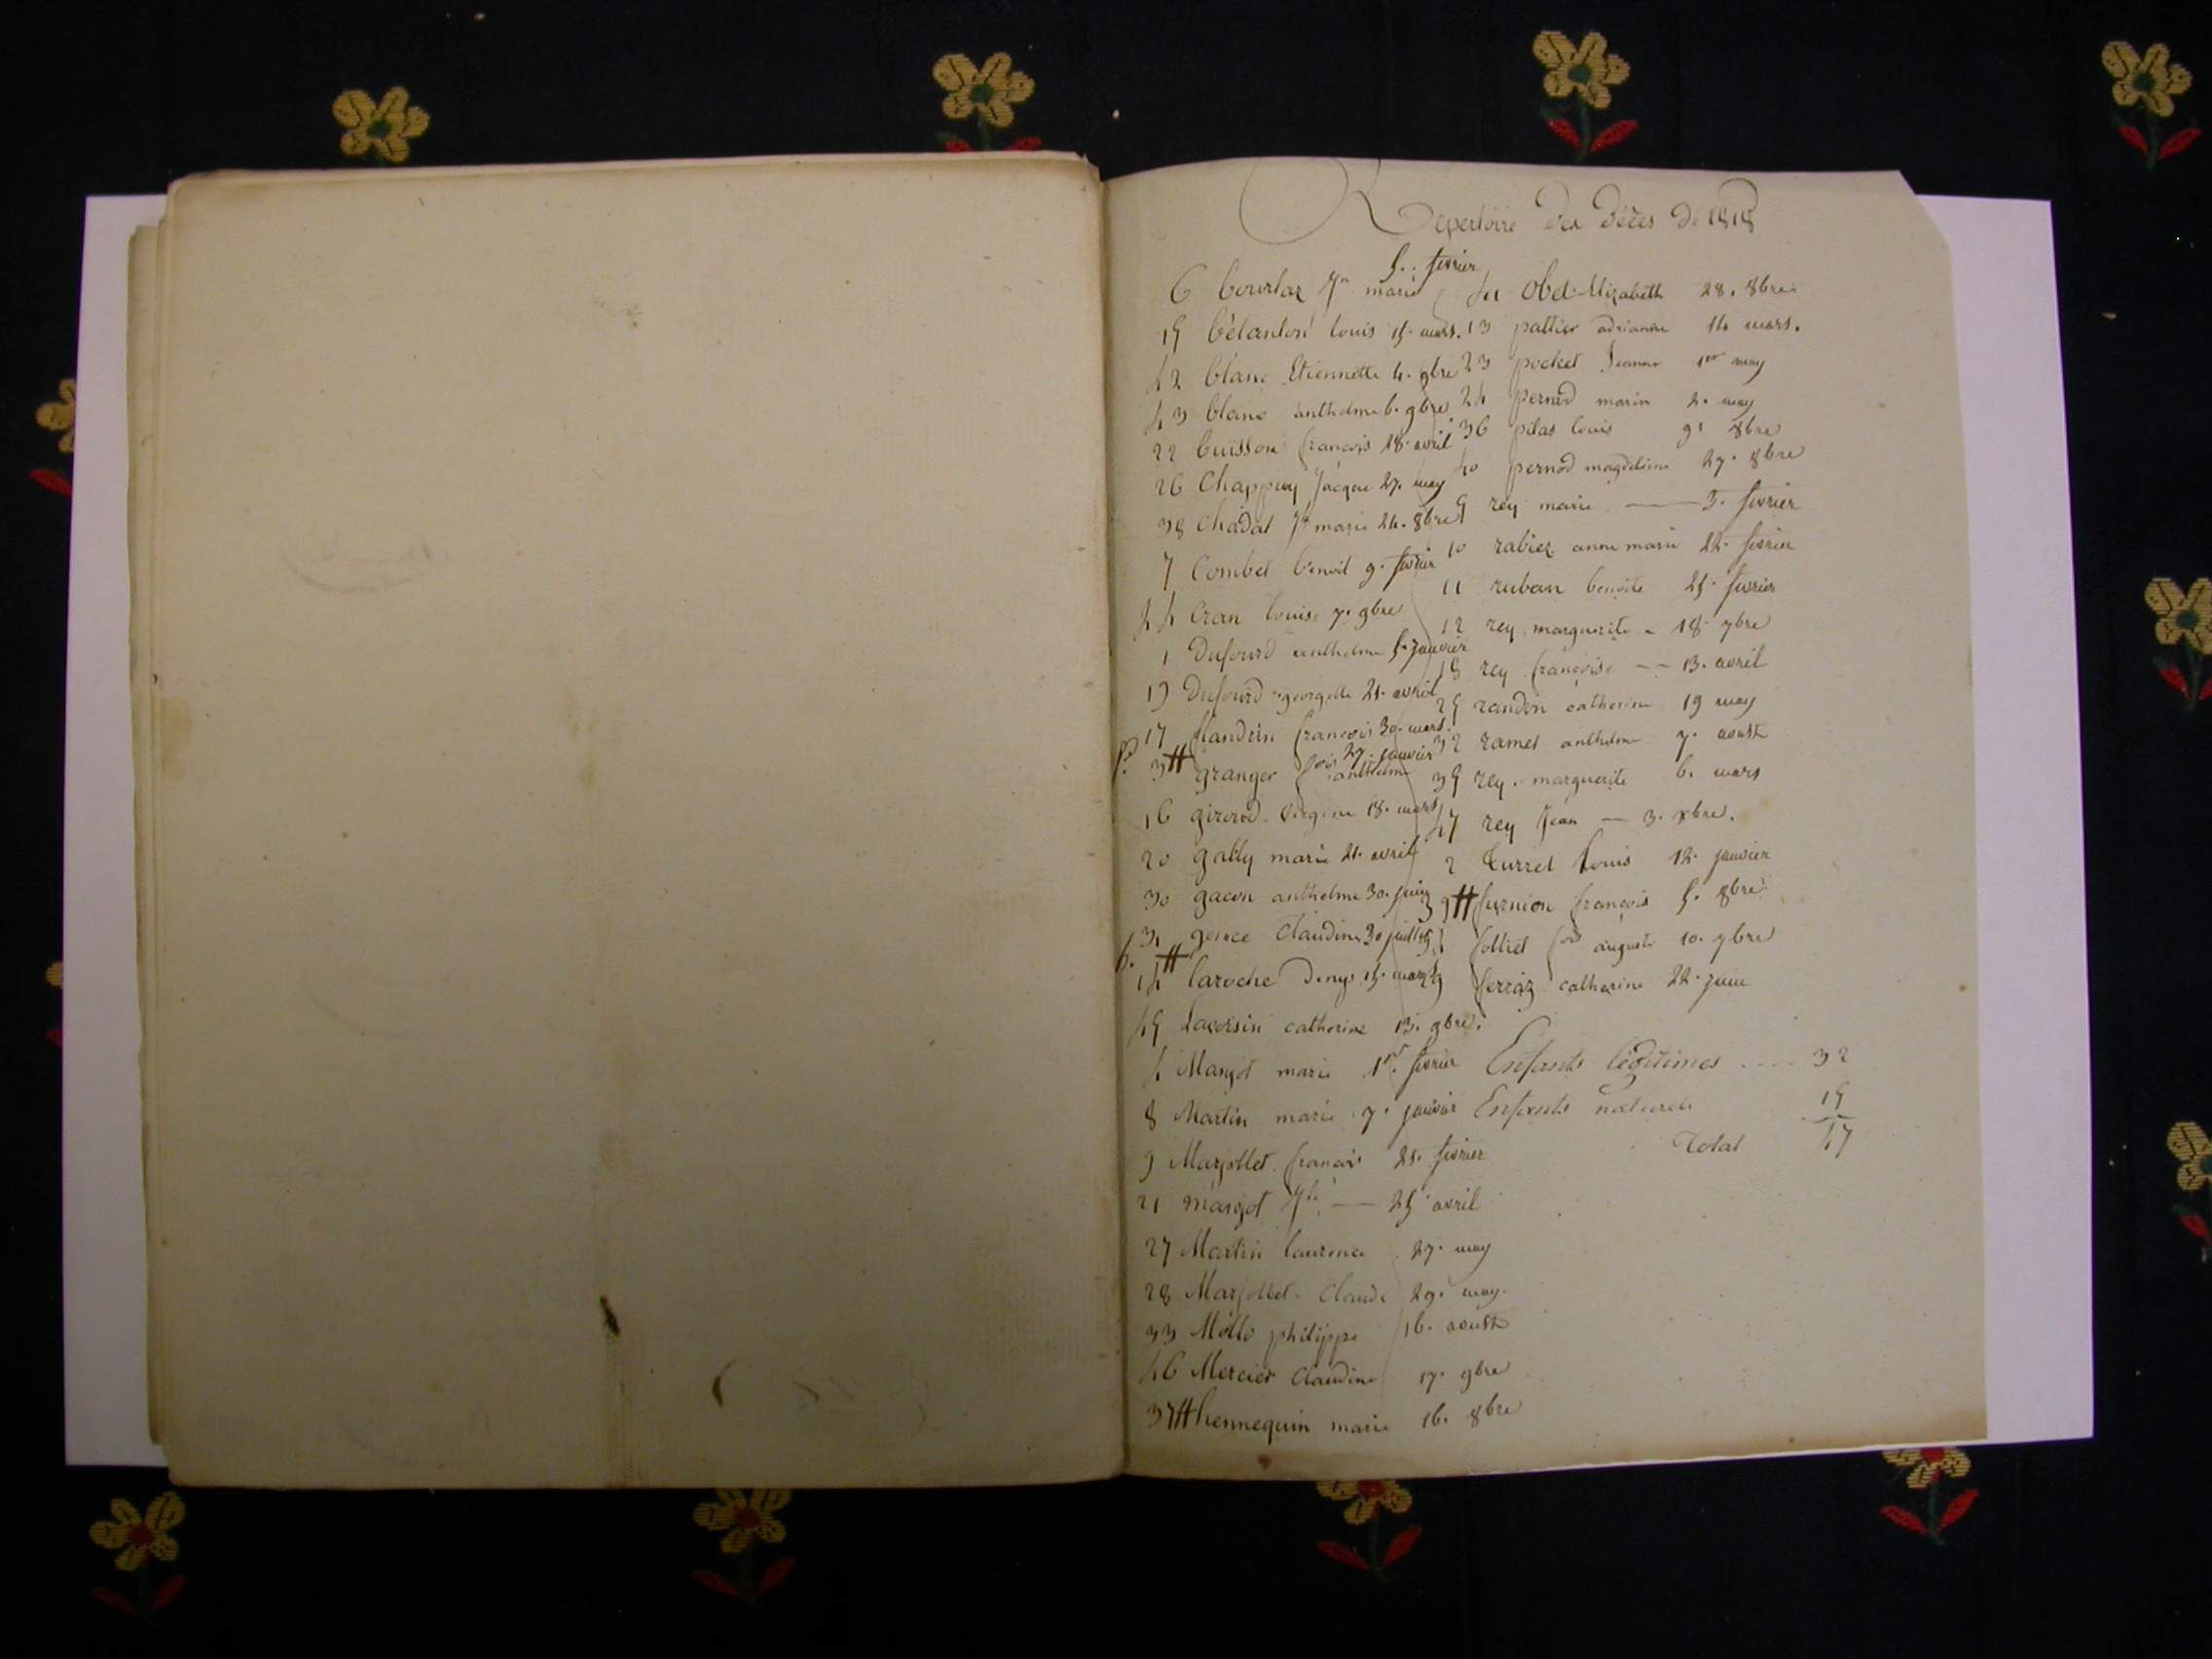 Repertoire des décès de 1818
6 bourlaz jn marie 5. fevrier
15 bélanton louis 15. mars.
42 blanc Etiennette 4. 9bre
43 blanc anthelme 6. 9bre
22 buisson françois 28. avril
26 Chappuy Jacque 27. may
38 Chadal marie 24. 8bre
7 Combet benoit 9. fevrier
44 Cran louise 7. 9bre
1 Dufourd anthelme 5. janvier
19 Dufourd georgette 21. avril
17 flandrin françois 30. mars.
3 # granger fois anthelme 27. janvier
16 girerod 18. mars
20 gally marie 21. avril
30 gacon anthelme 30. juin
31 Claudine 30 juillet
# 14 laroche Denys 15. mars
45 Laversin catherine 13. 9bre.
4 Marjot marie 1er. fevrier
8 Martin marie 7. janvier
9 Marjollet françois 21. fevrier
21 marjot — 25 avril
27 Martin laurence 27. may
28 Marjollet Claude 29. may.
33 Mollo philippe 16. aoust
46 Mercier Claudine 17. 9bre
37 # hennequin marie 16. 8bre
41 Obel Elizabeth 28. 8bre
13 pattier adrianne 14 mars.
23 pocket Jeanne 1er may
24 pernod marin 2. may
36 pilas louis 9. 8bre
40 pernod magdelaine 27. 8bre
5 rey marie — 3. fevrier
10 rabiez anne marie 22. fevrier
11 ruban benoite 25. fevrier
12 rey marguerite 18. 7bre
18 rey françoise — 13. avril
25 randon catherine 19 may
32 ramel anthelme 7. aoust
35 rey. marguerite 6. mars
47 rey Jean — 3. xbre.
2 turrel Louis 12. janvier
39 # françois 5. 8bre
34 folliet fois auguste 10. 7bre
29 ferraz catherine 22. juin
Enfants légitimes .... 32
Enfants naturels 15
Total 47